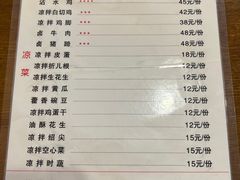 沾水鸡 ★★★ 45元/份
凉拌白切鸡 ★★★ 42元/份
凉拌鸡脚 ★★★ 38元/份
卤牛肉 ★★★ 48元/份
卤猪蹄 ★★★ 48元/份
凉菜
凉拌皮蛋 18元/份
凉拌折儿根 12元/份
凉拌花生芽 12元/份
凉拌黄瓜 12元/份
藿香豌豆 12元/份
凉拌鸡蛋干 12元/份
油酥花生 12元/份
凉拌绍尖 15元/份
凉拌空心菜 15元/份
凉拌时蔬 15元/份